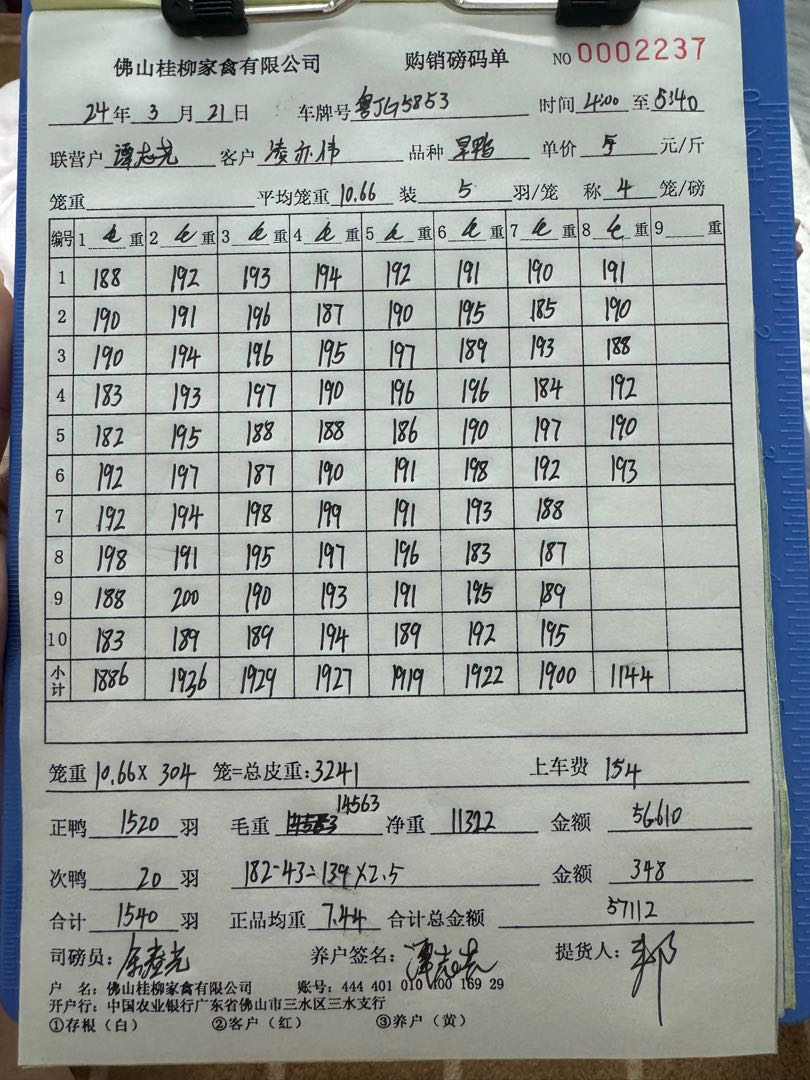 佛山桂柳家禽有限公司 购销磅码单 NO 0002237
24年 3 月 21日 车牌号 粤JG5853 时间 4:00 至 5:40
联营户 谭志尧 客户 凌亦伟 品种 旱鸭 单价 5 元/斤
笼重 平均笼重 10.66 装 5 羽/笼 称 4 笼/磅
编号 1 毛 重 2 毛 重 3 毛 重 4 毛 重 5 毛 重 6 毛 重 7 毛 重 8 毛 重 9 重
1 188 192 193 194 192 191 190 191
2 190 191 196 187 190 195 185 190
3 190 194 196 195 197 189 193 188
4 183 193 197 190 196 196 184 192
5 182 195 188 188 186 190 197 190
6 192 197 187 190 191 198 192 193
7 192 194 198 199 191 193 188
8 198 191 195 197 196 183 187
9 188 200 190 193 191 195 189
10 183 189 189 194 189 192 195
小计 1886 1936 1929 1927 1919 1922 1900 1144
笼重 10.66× 304 笼=总皮重:3241 上车费 154
正鸭 1520 羽 毛重 14563 净重 11322 金额 56610
次鸭 20 羽 182-43=139×2.5 金额 348
合计 1540 羽 正品均重 7.44 合计总金额 57112
司磅员: 养户签名: 谭志尧 提货人:
户 名: 佛山桂柳家禽有限公司 账号: 444 401 010 400 169 29
开户行: 中国农业银行广东省佛山市三水区三水支行
①存根(白) ②客户(红) ③养户(黄)